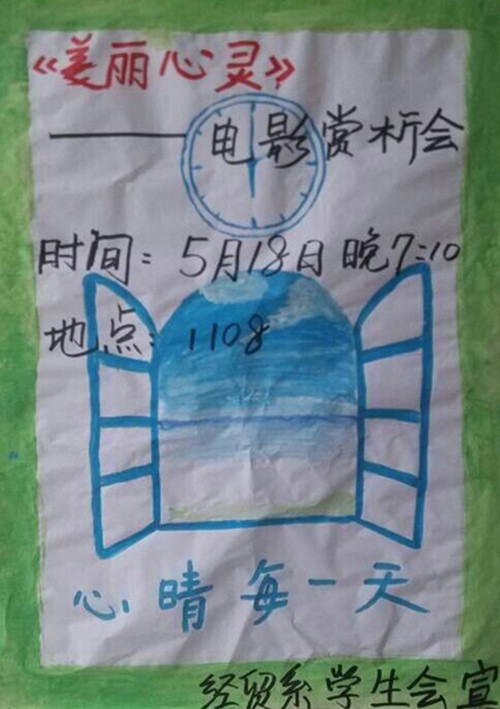 《美丽心灵》
——电影赏析会
时间：5月18日 晚7:10
地点：1108
心晴每一天
经贸系学生会宣